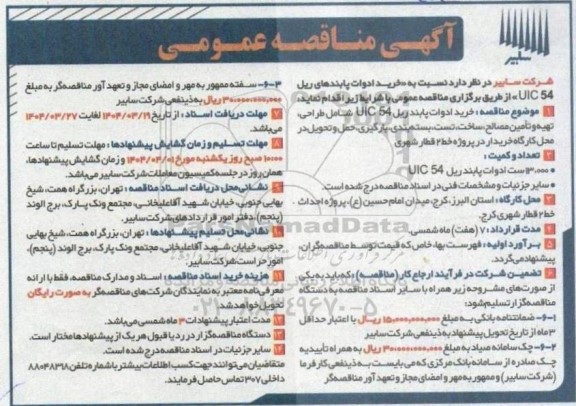 آگهی مناقصه عمومی
سابیر
شرکت سابیر در نظر دارد نسبت به «خرید ادوات پابندهای ریل
UIC 54» از طریق برگزاری مناقصه عمومی با شرایط زیر اقدام نماید:
1 موضوع مناقصه: خرید ادوات پابند ریل UIC 54 شامل طراحی،
تهیه و تأمین مصالح، ساخت، تست، بسته‌بندی، بارگیری، حمل و تحویل در
محل کارگاه خریدار در پروژه خط ۲ قطار شهری
2 تعداد و کمیت:
• ۱۳،۰۰۰ ست ادوات پابند ریل UIC 54
• سایر جزئیات و مشخصات فنی در اسناد مناقصه درج شده است.
3 محل کارگاه: استان البرز، کرج، میدان امام حسین (ع)، پروژه احداث
خط ۲ قطار شهری کرج.
4 مدت قرارداد: ۷ (هفت) ماه شمسی.
5 برآورد اولیه: فهرست بها، خاص که قیمت توسط مناقصه‌گران،
پیشنهاد می‌گردد.
6 تضمین شرکت در فرآیند ارجاع کار (مناقصه): که باید به یکی
از صورت‌های مشروحه زیر همراه با سایر اسناد مناقصه به دستگاه
مناقصه‌گزار تسلیم شود:
۶-۱- ضمانتنامه بانکی به مبلغ ۱۵،۰۰۰،۰۰۰،۰۰۰ ریال با اعتبار حداقل
۳ ماه از تاریخ تحویل پیشنهاد به ذینفعی شرکت سابیر
۶-۲- چک سامانه صیاد به مبلغ ۳۰،۰۰۰،۰۰۰،۰۰۰ ریال به همراه تأییدیه
چک صادره از سامانه بانک مرکزی که می‌بایست به ذینفعی کارفرما
(شرکت سابیر) و ممهور به مهر و امضای مجاز و تعهدآور مناقصه‌گر
۶-۳- سفته ممهور به مهر و امضای مجاز و تعهدآور مناقصه‌گر به مبلغ
۳۰،۰۰۰،۰۰۰،۰۰۰ ریال به ذینفعی شرکت سابیر
7 مهلت دریافت اسناد: از تاریخ ۱۴۰۴/۰۳/۱۹ لغایت ۱۴۰۴/۰۳/۲۷
می‌باشد.
8 مهلت تسلیم و زمان گشایش پیشنهادها: مهلت تسلیم تا ساعت
۱۰:۰۰ صبح روز یکشنبه مورخ ۱۴۰۴/۰۴/۰۱ و زمان گشایش پیشنهادها،
همان روز در جلسه کمیسیون معاملات شرکت سابیر می‌باشد.
9 نشانی محل دریافت اسناد مناقصه: تهران، بزرگراه همت، شیخ
بهایی جنوبی، خیابان شهید آقاعلیخانی، مجتمع ونک پارک، برج الوند
(پنجم)، دفتر امور قراردادهای شرکت سابیر.
10 نشانی محل تسلیم پیشنهادها: تهران، بزرگراه همت، شیخ بهایی
جنوبی، خیابان شهید آقاعلیخانی، مجتمع ونک پارک، برج الوند (پنجم)،
امور حراست شرکت سابیر.
11 هزینه خرید اسناد مناقصه: اسناد و مدارک مناقصه، فقط با ارائه
معرفی‌نامه معتبر به نمایندگان شرکت‌های مناقصه‌گر به صورت رایگان
تحویل خواهد شد.
12 مدت اعتبار پیشنهادات ۳ ماه شمسی می‌باشد.
13 دستگاه مناقصه‌گزار در رد یا قبول هر یک از پیشنهادها مختار است.
14 سایر جزئیات در اسناد مناقصه درج شده است.
متقاضیان می‌توانند جهت کسب اطلاعات بیشتر با شماره تلفن ۸۸۰۴۸۳۱۸
داخلی ۳۰۷ تماس حاصل فرمایند.